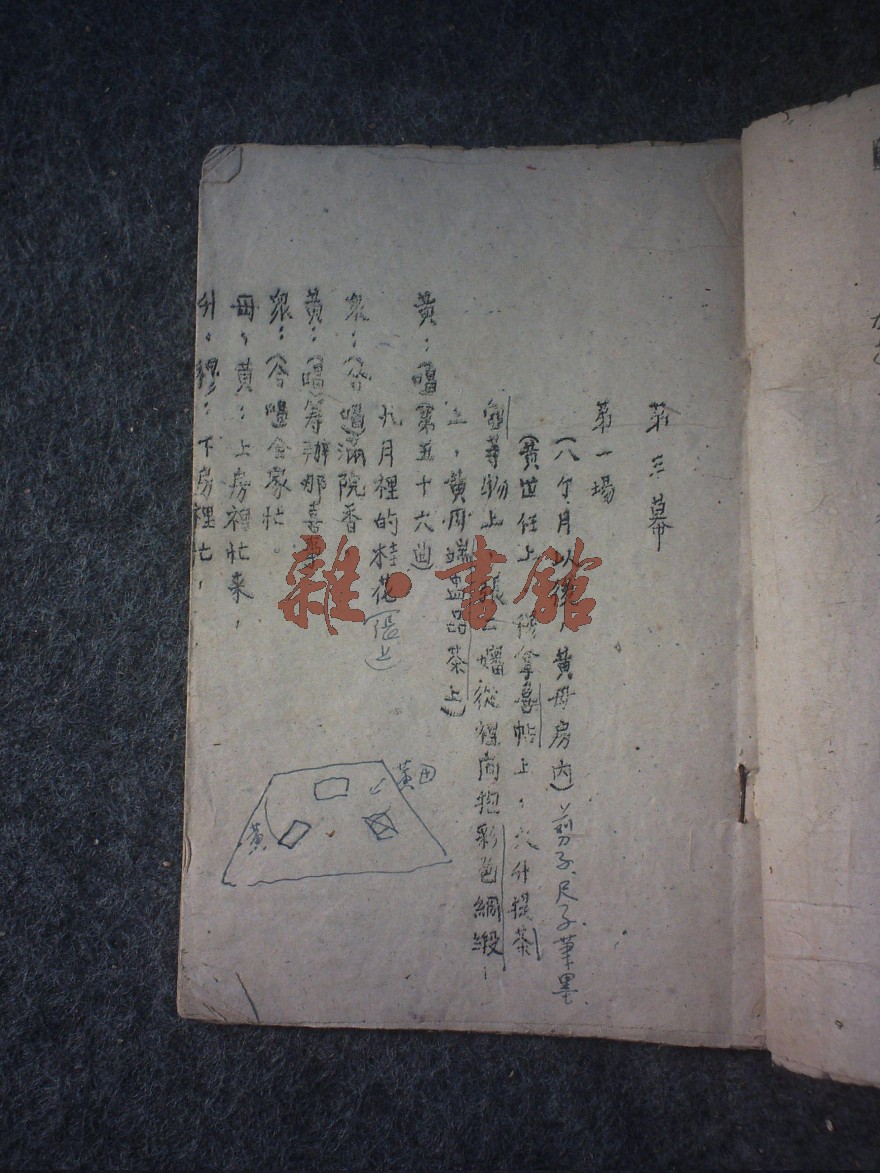 第三幕
第一場
(八个月以後,黃母房內)剪子.尺子.筆墨
(黃世仁上,穆拿喜帖上,大升提茶
壺等物上,張二嬸從裡面抱彩色綢緞,
上,黃母端蓋器茶上)
黃:(唱第五十六曲)
九月裡的桂花(張上)
眾:(合唱)滿院香
黃:(唱)籌辦那喜事
眾:(合唱全家忙。
母,黃:上房裡忙来,
升,穆:下房裡忙,
黃母
黃
雜·書館